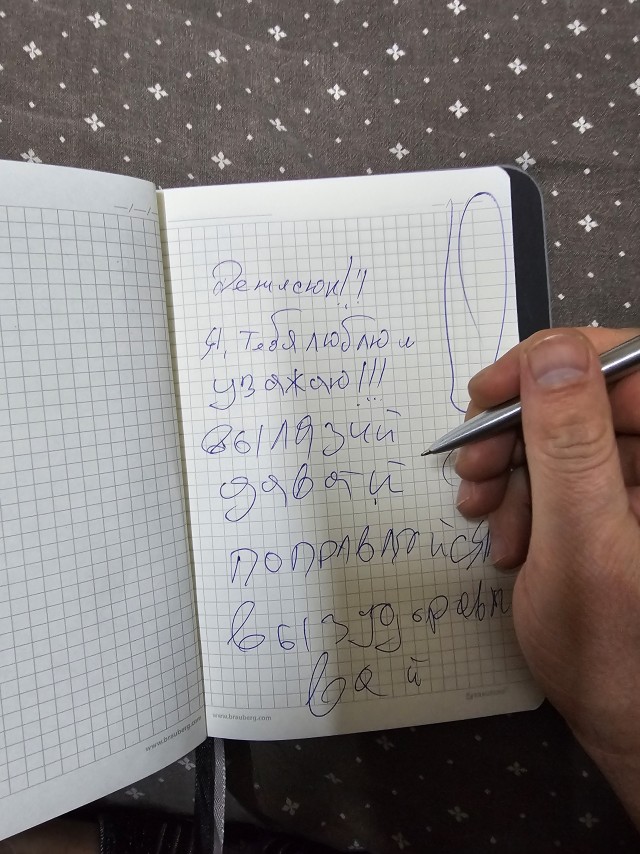 Денисюк!!!
Я, тебя люблю и
уважаю!!!
вылязий
давай
поправляйся
вызудоравли
вай
www.brauberg.com
www.brauberg.com